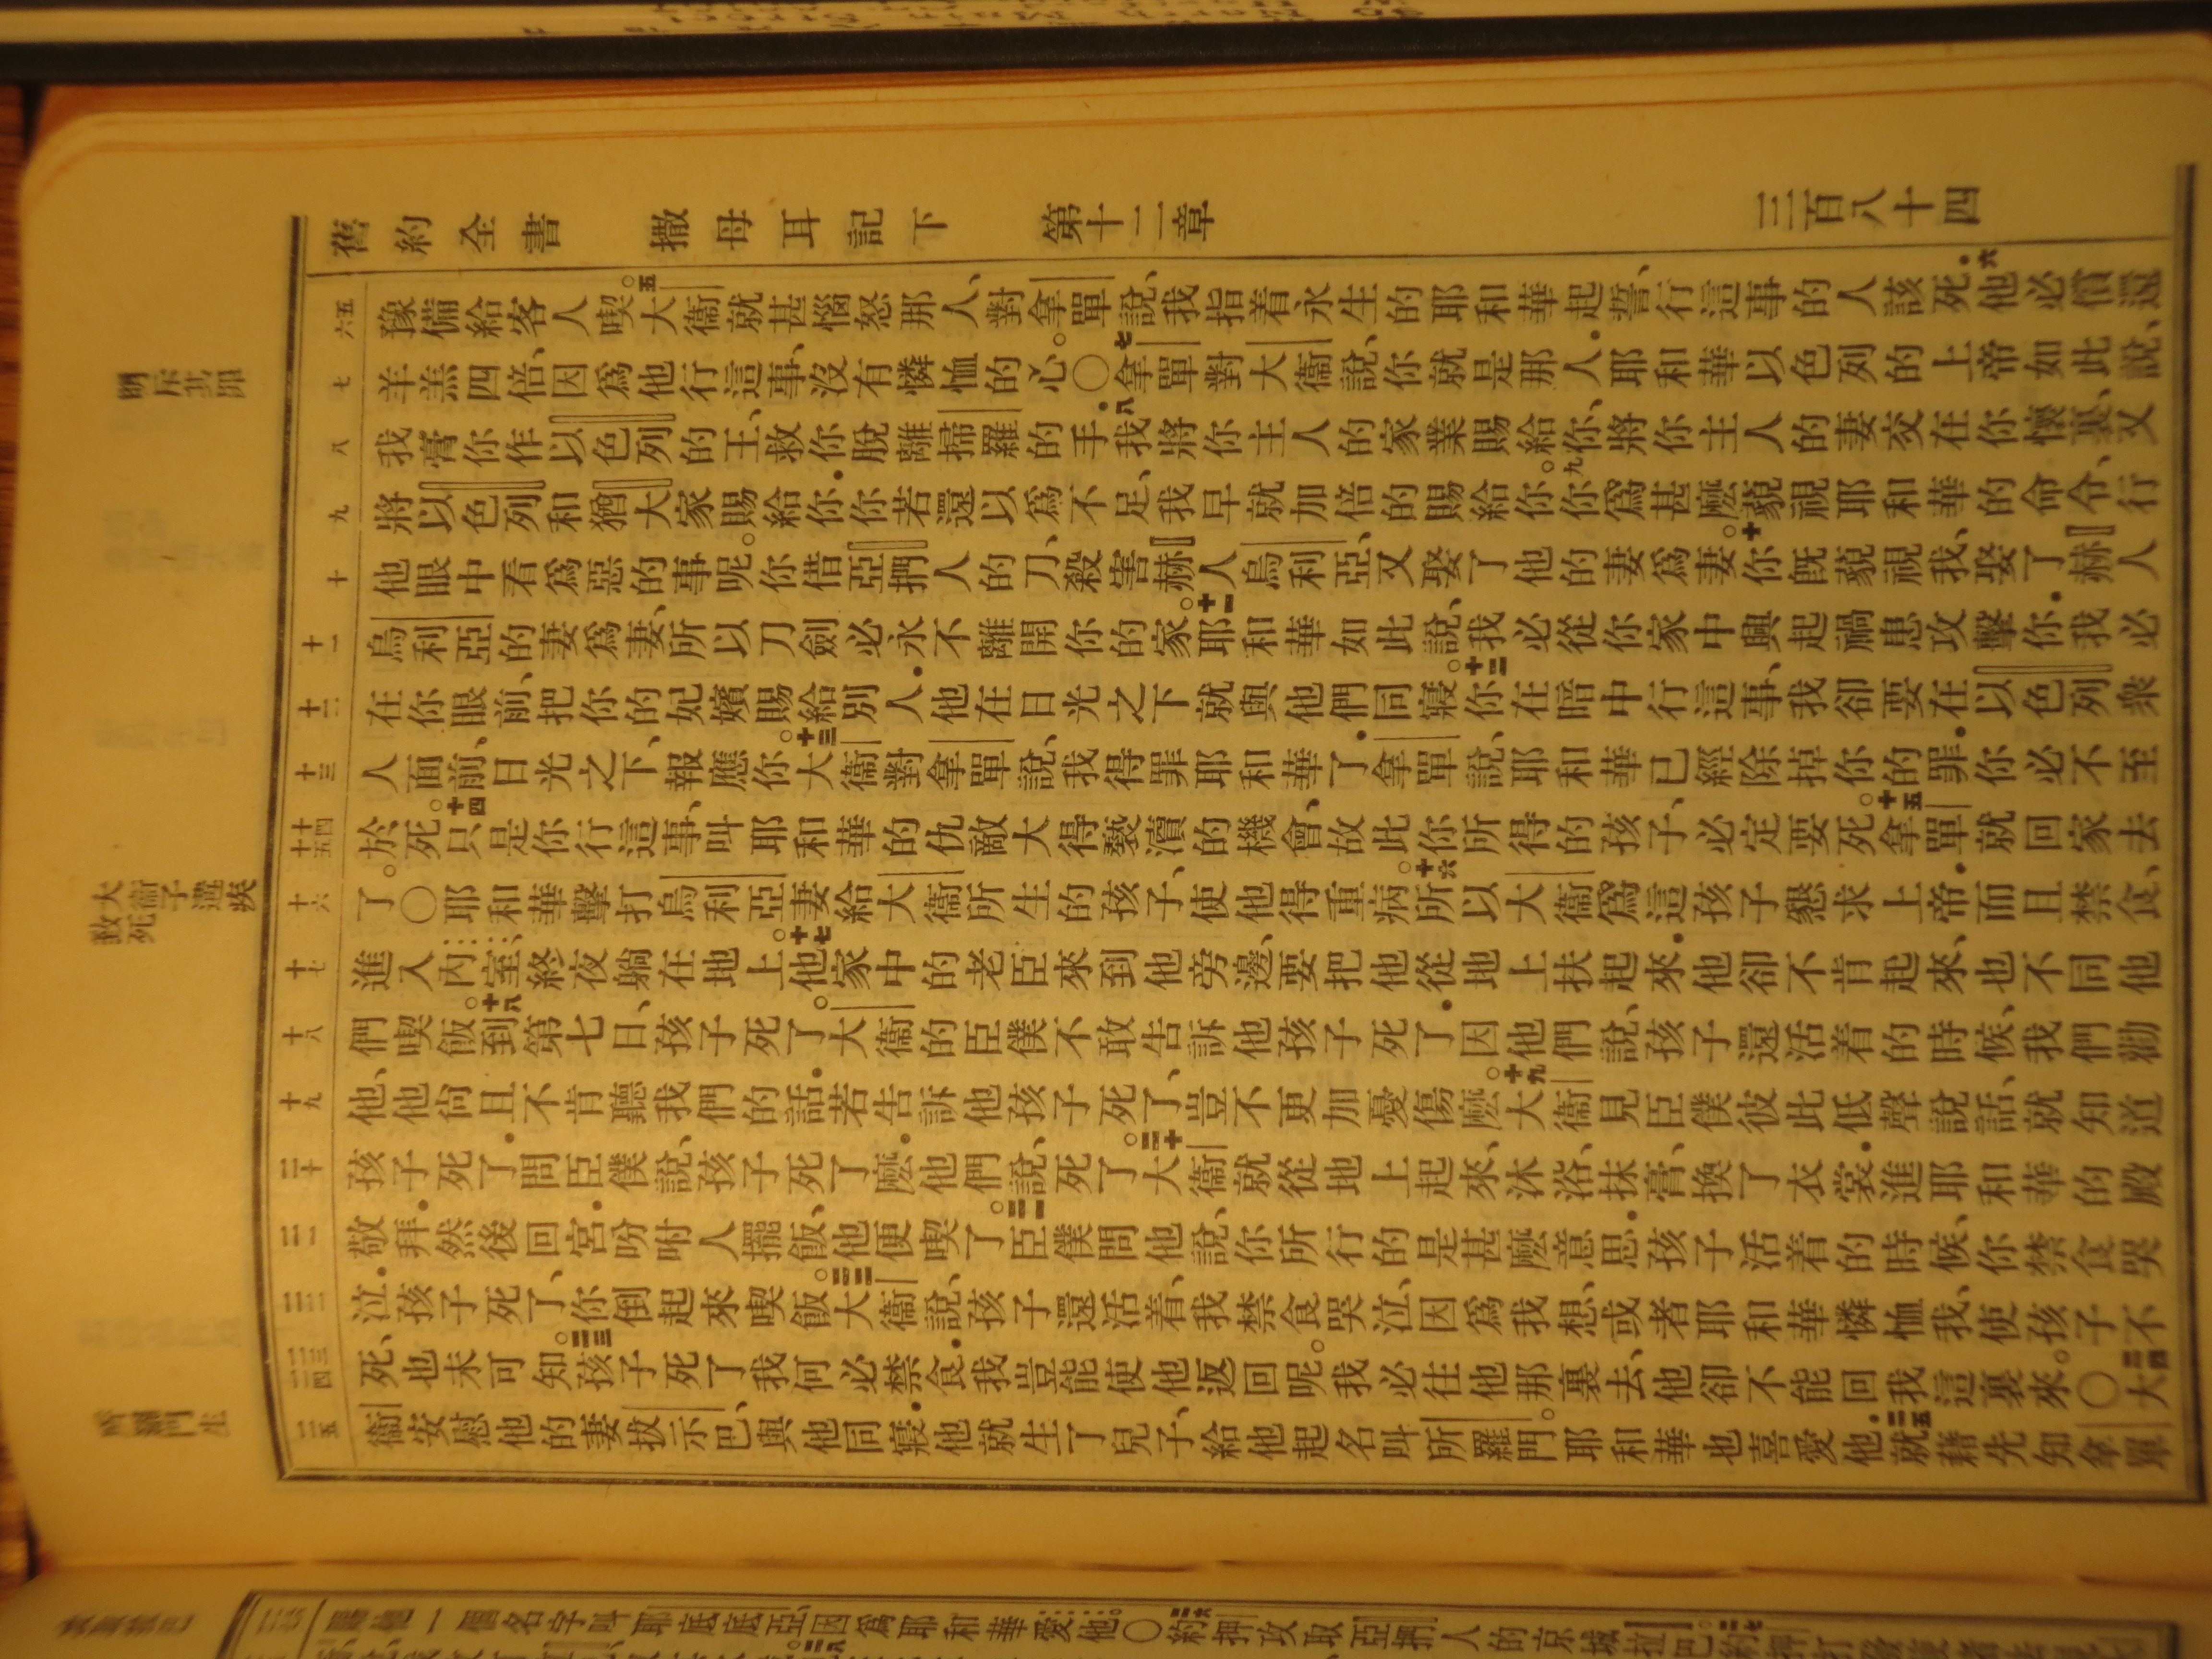 舊約全書 撒母耳記下 第十二章 三百八十四
五六 豫備給客人喫。五大衞就甚惱怒那人、對拿單說、我指着永生的耶和華起誓、行這事的人該死.六他必償還
七 羊羔四倍、因爲他行這事、沒有憐恤的心。〇七拿單對大衞說、你就是那人.耶和華以色列的上帝如此說、
八 我膏你作以色列的王、救你脫離掃羅的手.八我將你主人的家業賜給你、將你主人的妻交在你懷裏、又
九 將以色列和猶大家賜給你.你若還以爲不足、我早就加倍的賜給你。九你爲甚麽藐視耶和華的命令、行
十 他眼中看爲惡的事呢。你借亞捫人的刀、殺害赫人烏利亞、又娶了他的妻爲妻。十你旣藐視我、娶了赫人
十一 烏利亞的妻爲妻、所以刀劍必永不離開你的家。十一耶和華如此說、我必從你家中興起禍患攻擊你.我必
十二 在你眼前、把你的妃嬪賜給別人.他在日光之下就與他們同寢。十二你在暗中行這事、我卻要在以色列衆
十三 人面前、日光之下、報應你。十三大衞對拿單說、我得罪耶和華了.拿單說、耶和華已經除掉你的罪.你必不至
十四十五 於死。十四只是你行這事、叫耶和華的仇敵大得褻瀆的機會、故此你所得的孩子、必定要死。十五拿單就回家去
十六 了。〇耶和華擊打烏利亞妻給大衞所生的孩子、使他得重病。十六所以大衞爲這孩子懇求上帝.而且禁食、
十七 進入內室、終夜躺在地上。十七他家中的老臣來到他旁邊、要把他從地上扶起來.他卻不肯起來、也不同他
十八 們喫飯。十八到第七日、孩子死了。大衞的臣僕不敢告訴他孩子死了.因他們說、孩子還活着的時候、我們勸
十九 他、他尙且不肯聽我們的話.若告訴他孩子死了、豈不更加憂傷麽。十九大衞見臣僕彼此低聲說話、就知道
二十 孩子死了.問臣僕說、孩子死了麽.他們說、死了。二十大衞就從地上起來、沐浴、抹膏、換了衣裳.進耶和華的殿
二一 敬拜.然後回宮.吩咐人擺飯、他便喫了。二一臣僕問他說、你所行的是甚麽意思.孩子活着的時候、你禁食哭
二二 泣.孩子死了、你倒起來喫飯。二二大衞說、孩子還活着、我禁食哭泣、因爲我想、或者耶和華憐恤我、使孩子不
二三二四 死、也未可知。二三孩子死了、我何必禁食.我豈能使他返回呢。我必往他那裏去、他卻不能回我這裏來。〇二四大
二五 衞安慰他的妻拔示巴、與他同寢.他就生了兒子、給他起名叫所羅門。耶和華也喜愛他.二五就藉先知拿單
大衞子遘疾
致死
所羅門生
賜他一個名字叫耶底底亞因爲耶和華愛他。〇二六約押攻取亞捫人的京城拉巴